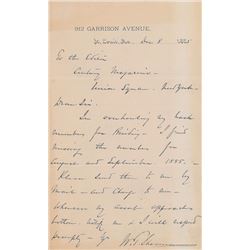 912 GARRISON AVENUE.
St. Louis, Mo. Dec 8 1885
To the Editor
Century Magazine
Union Square New York
Dear Sir
In overhauling my back
numbers for Binding - I find
missing the number for
August and September 1885.
Please send them to me by
Mail - and Charge to me -
Whenever my account approaches
bottom, notify me & I will respond
promptly - Yrs
W. T. Sherman